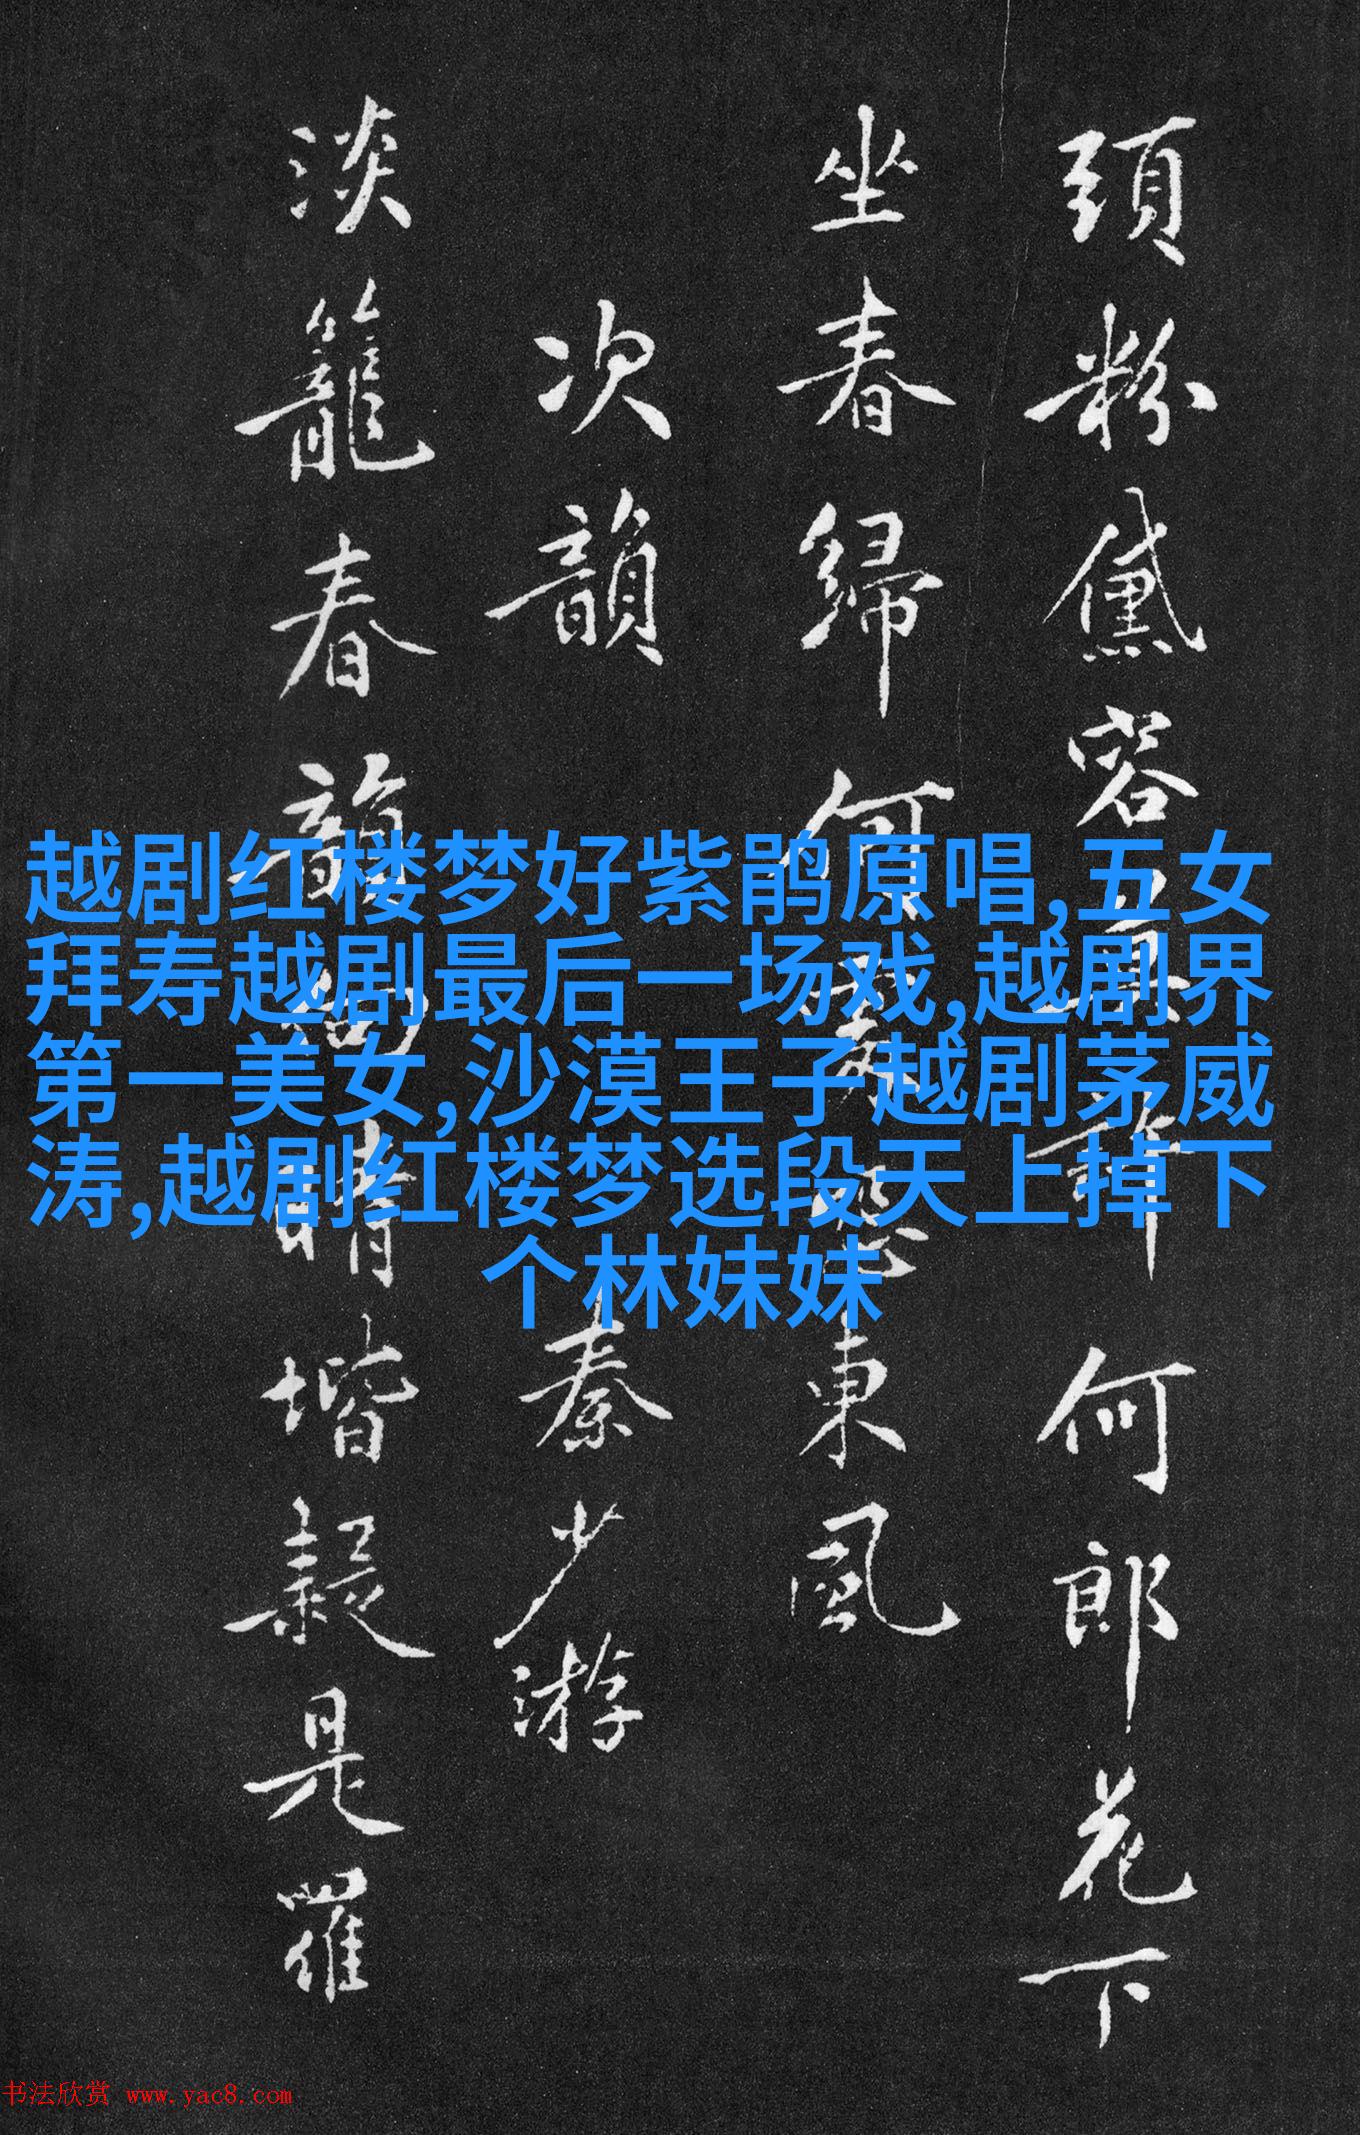 頭粉黛容何郎花下
坐春歸何東風
次韻秦少游
淡籠春韻晴堦疑是羅
越剧红楼梦好紫鹃原唱,五女
拜寿越剧最后一场戏,越剧界
第一美女,沙漠王子越剧茅威
涛,越剧红楼梦选段天上掉下
个林妹妹
书法欣赏 www.yac8.com